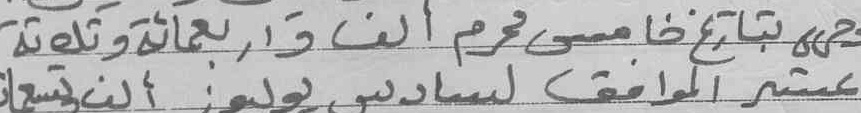 وحرر بتاريخ خامس محرم ألف وأربعمائة وثلاثة
عشر الموافق لسادس يوليوز ألف وتسعمائة